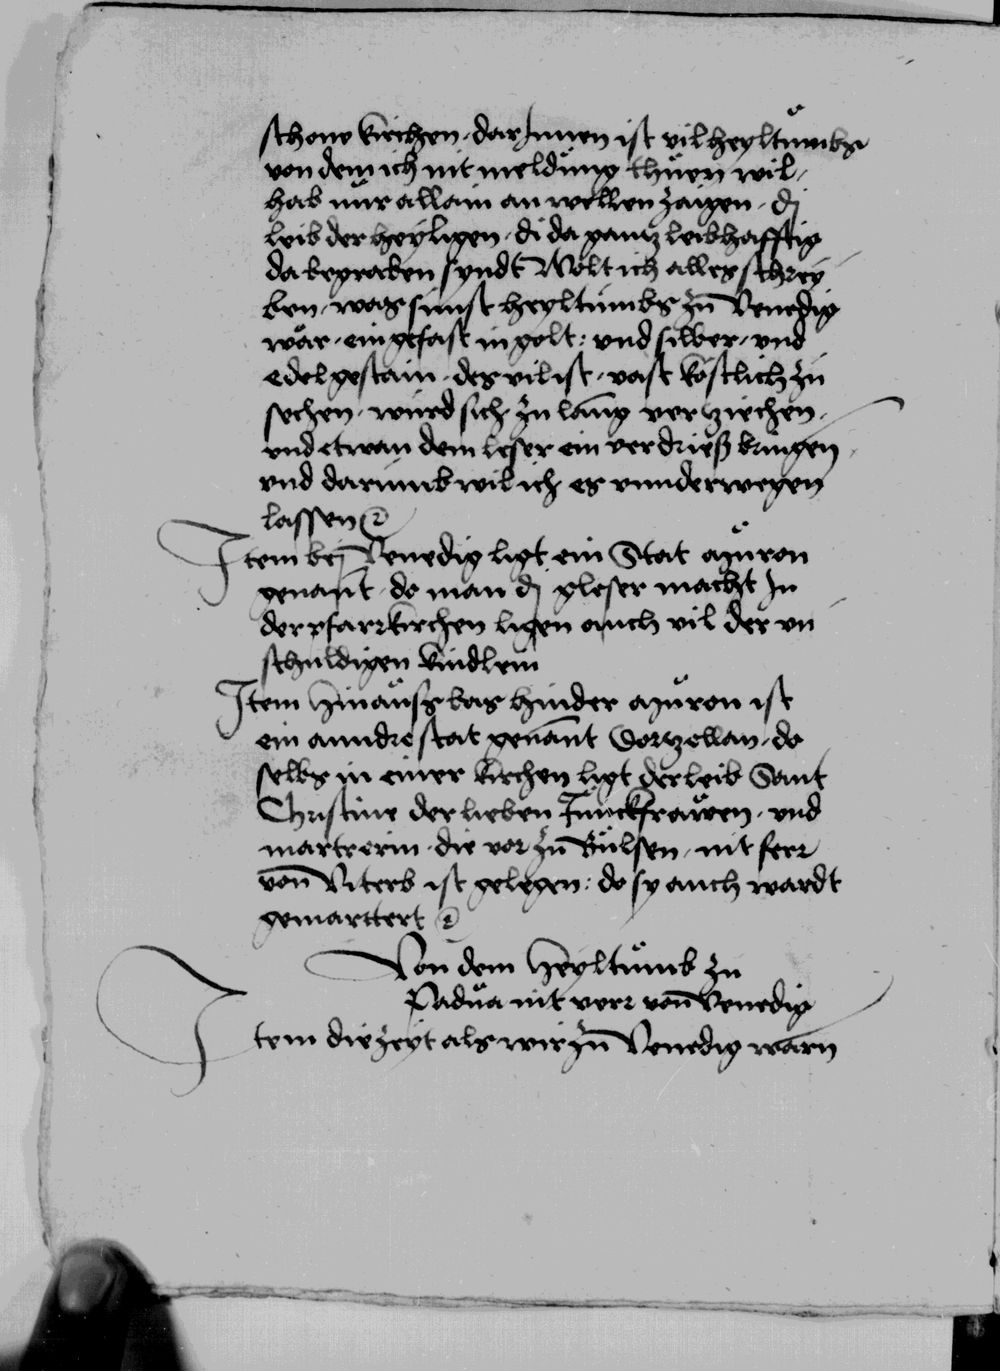 schone kirchen · dar Innen ist vil heyltumbs
von dem ich nit meldung thuen wil /
hab nur allain an wellen zaigen · dj
leib der heyligen · di da gantz leibhafftig
da begraben syndt Wolt ich alles schrey
ben / was sunst heyltumbs zu Venedig
wär · ein gefast in golt : vnd silber · vnd
edel gestain · des vil ist · vast köstlich zu
sechen · wurd sich zu lanng verziechen ·
vnd etwan dem leser ein verdrieß bringen
vnd darumb wil ich es vnnderwegen
lassen
Item bej Venedig ligt ein Stat Muron
genant · do man dj gleser macht In
der pfarrkirchen ligen auch vil der vn
schuldigen kindlein
Item hinauss bas hinder Muron ist
ein anndre stat genant Dorzellan · do
selbs in einer kirchen ligt der leib Sant
Christine der lieben Junckfrawen · vnd
martrerin · die vor zu Bulsen / nit ferr
von Viterb ist gelegen : do sy auch wardt
gemarttert
Von dem Heyltumb zu
Padua nit verr von Venedig
Item die zeyt als wir zu Venedig warn